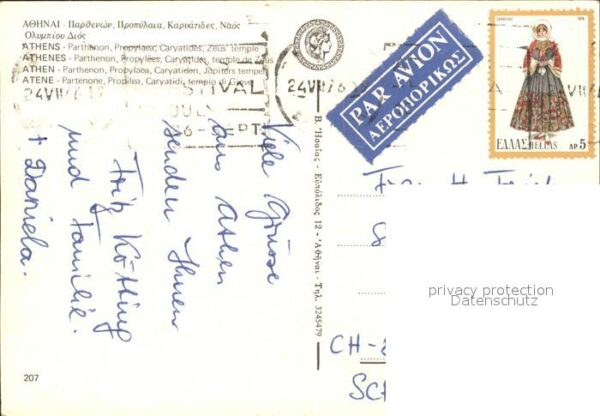 ΑΘΗΝΑΙ - Παρθενών, Προπύλαια, Καρυάτιδες, Ναὸς
Ολυμπίου Διός
ATHENS - Parthenon, Propylaea, Caryatides, Zeus' temple
ATHENES - Parthenon, Propylées, Caryatides, temple de Zeus
ATHEN - Parthenon, Propylaea, Caryatiden, Jupiters tempel
ATENE - Partenone, Propilea, Cariatidi, tempio di Giove
24 VII 76
STIVAL
JULY
SEPT
24 VII 76
PAR AVION
ΑΕΡΟΠΟΡΙΚΩΣ
1974
ΕΛΛΑΣ HELLAS ΔΡ 5
Viele Grüsse
aus Athen
senden Ihnen
Fritz Kötting
und Familie.
+ Daniela.
Αθῆναι - Τηλ. 3245479
CH-
SC
207
privacy protection
Datenschutz